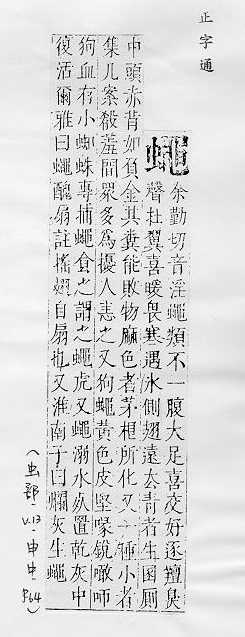 正字通
蠅
余勤切音淫蠅類不一腹大足喜交好逐羶臭
聲壯翼喜暖畏寒遇氷側翅遠去青者生圊厠
中頭赤背如負金其糞能敗物麻色者茅根所化又一種小者
集几案殽羞間眾多為擾人恚之又狗蠅黃色皮堅喙銳噉師
狗血存小蜘蛛専捕蠅食之謂之蠅虎又蠅溺水死置乾灰中
復活爾雅曰蠅醜扇註搖翅自扇也又淮南子曰爛灰生蠅
(虫部, V.13, 申中, P64)